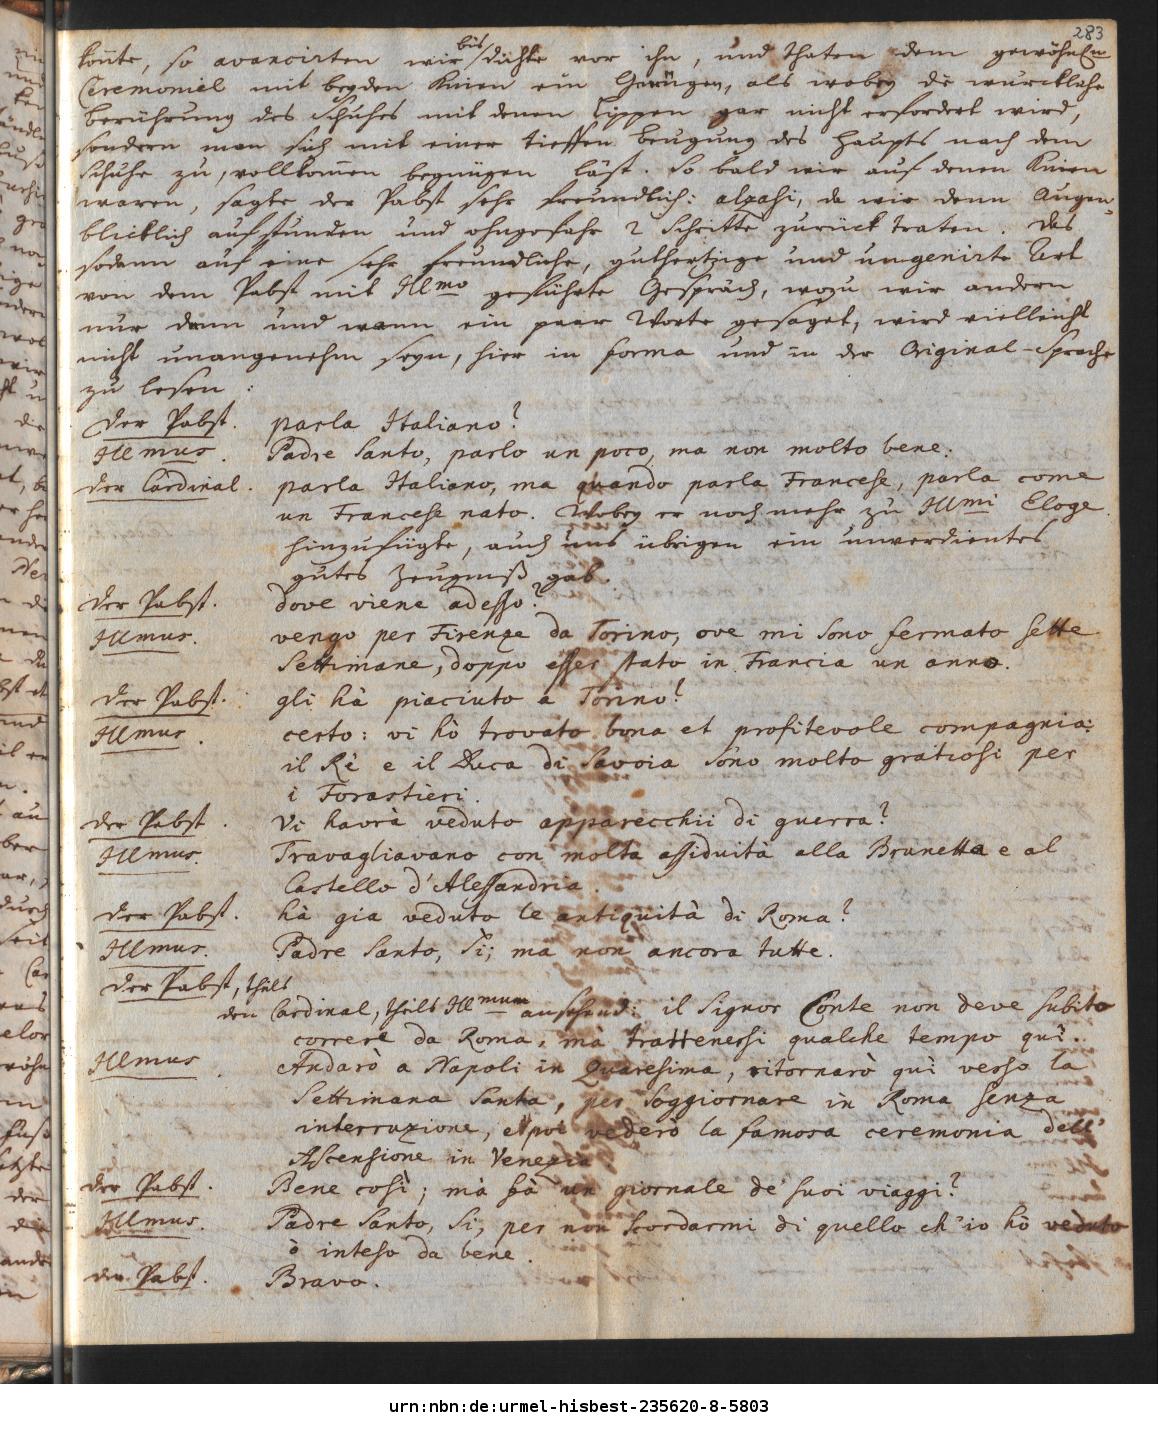 283
könte, so avancirten wir biß dichte vor ihn, und thaten dem gewöhnl.n
Ceremoniel mit beyden Knien ein Genügen, als wobey die würckliche
berührung des Schuhes mit denen Lippen gar nicht erfordert wird,
sondern man sich mit einer tieffen beugung des Haupts nach dem
Schuhe zu, vollkom̅en begnügen läst. So bald wir auf denen Knien
waren, sagte der Pabst sehr freundlich: alzasi, da wir denn Augen-
blicklich aufstunden und ohngefähr 2 Schritte zurück traten. Das
sodann auf eine sehr freundliche, gutherzige und ungenirte Art
von dem Pabst mit Illmo geführte Gespräch, wozu wir andern
nur dann und wann ein paar Worte gesaget, wird vielleicht
nicht unangenehm seyn, hier in forma und in der Original-Sprache
zu lesen:
Der Pabst. parla Italiano?
Illmus. Padre Santo, parlo un poco, ma non molto bene.
der Cardinal. parla Italiano, ma quando parla Francese, parla come
un Francese nato. Wobey er noch mehr zu Illmi Eloge
hinzufügte, auch uns übrigen ein unverdientes
gutes Zeugniß gab.
der Pabst. dove viene adesso?
Illmus. vengo per Firenze da Torino, ove mi sono fermato sette
Settimane, doppo esser stato in Francia un anno.
der Pabst. gli hà piaciuto a Torino?
Illmus. certo: vi hò trovato bona et profitevole compagnia:
il Rè e il Duca di Savoia sono molto gratiosi per
i Forastieri.
der Pabst. Vi havrà veduto apparecchii di guerra?
Illmus. Travagliavano con molta assiduità alla Brunetta e al
Castello d'Alessandria.
der Pabst. hà gia veduto le antiquità di Roma?
Illmus. Padre Santo, Si; ma non ancora tutte.
der Pabst, theils
den Cardinal, theils Illmum ansehend: il Signor Conte non deve subito
correre da Roma, mà trattenersi qualche tempo quì.
Illmus. Andarò a Napoli in Quaresima, ritornarò quì verso la
Settimana Santa, per soggiornare in Roma senza
interruzione, e poi vederò la famosa ceremonia dell'
Ascensione in Venezia.
der Pabst. Bene così; mà fà un giornale de' suoi viaggi?
Illmus. Padre Santo, Si, per non scordarmi di quello ch'io hò veduto
ò inteso da bene.
der Pabst. Bravo.
urn:nbn:de:urmel-hisbest-235620-8-5803